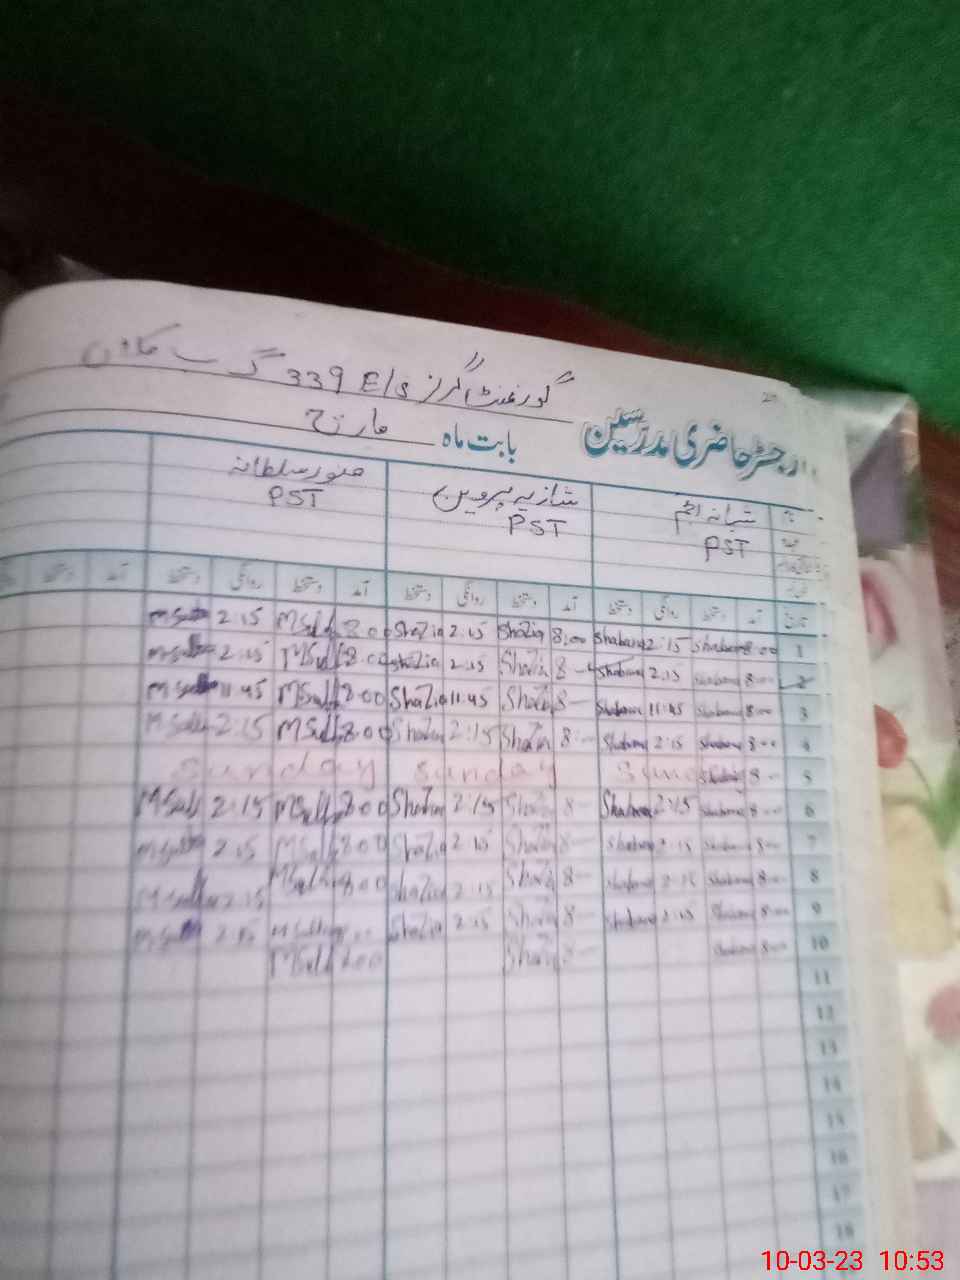 گورنمنٹ گرلز E/S 339 گ ب
رجسٹر حاضری مدرسین بابت ماہ مارچ
شبانہ انجم شازیہ پروین منور سلطانہ
PST PST PST
آمد دستخط روانگی دستخط آمد دستخط روانگی دستخط آمد دستخط روانگی دستخط آمد دستخط
1 8:00 Shabana 2:15 Shabana 8:00 Shazia 2:15 Shazia 8:00 MSult 2:15
2 8:00 Shabana 2:15 Shabana 8 Shazia 2:15 Shazia 8:00 MSult 2:15
3 8:00 Shabana 11:45 Shabana 8 Shazia 11:45 Shazia 8:00 MSult 11:45
4 8:00 Shabana 2:15 Shabana 8 Shazia 2:15 Shazia 8:00 MSult 2:15
5 8 Sunday Sunday
6 8 Shabana 2:15 Shabana 8 Shazia 2:15 Shazia 8:00 MSult 2:15
7 8 Shabana 2:15 Shabana 8 Shazia 2:15 Shazia 8:00 MSult 2:15
8 8 Shabana 2:15 Shabana 8 Shazia 2:15 Shazia 8:00 MSult 2:15
9 8:00 Shabana 2:15 Shabana 8 Shazia 2:15 Shazia 2:15
10 8:00 Shabana 8 Shazia 8:00 MSult
11
12
13
14
15
16
17
18
10-03-23 10:53